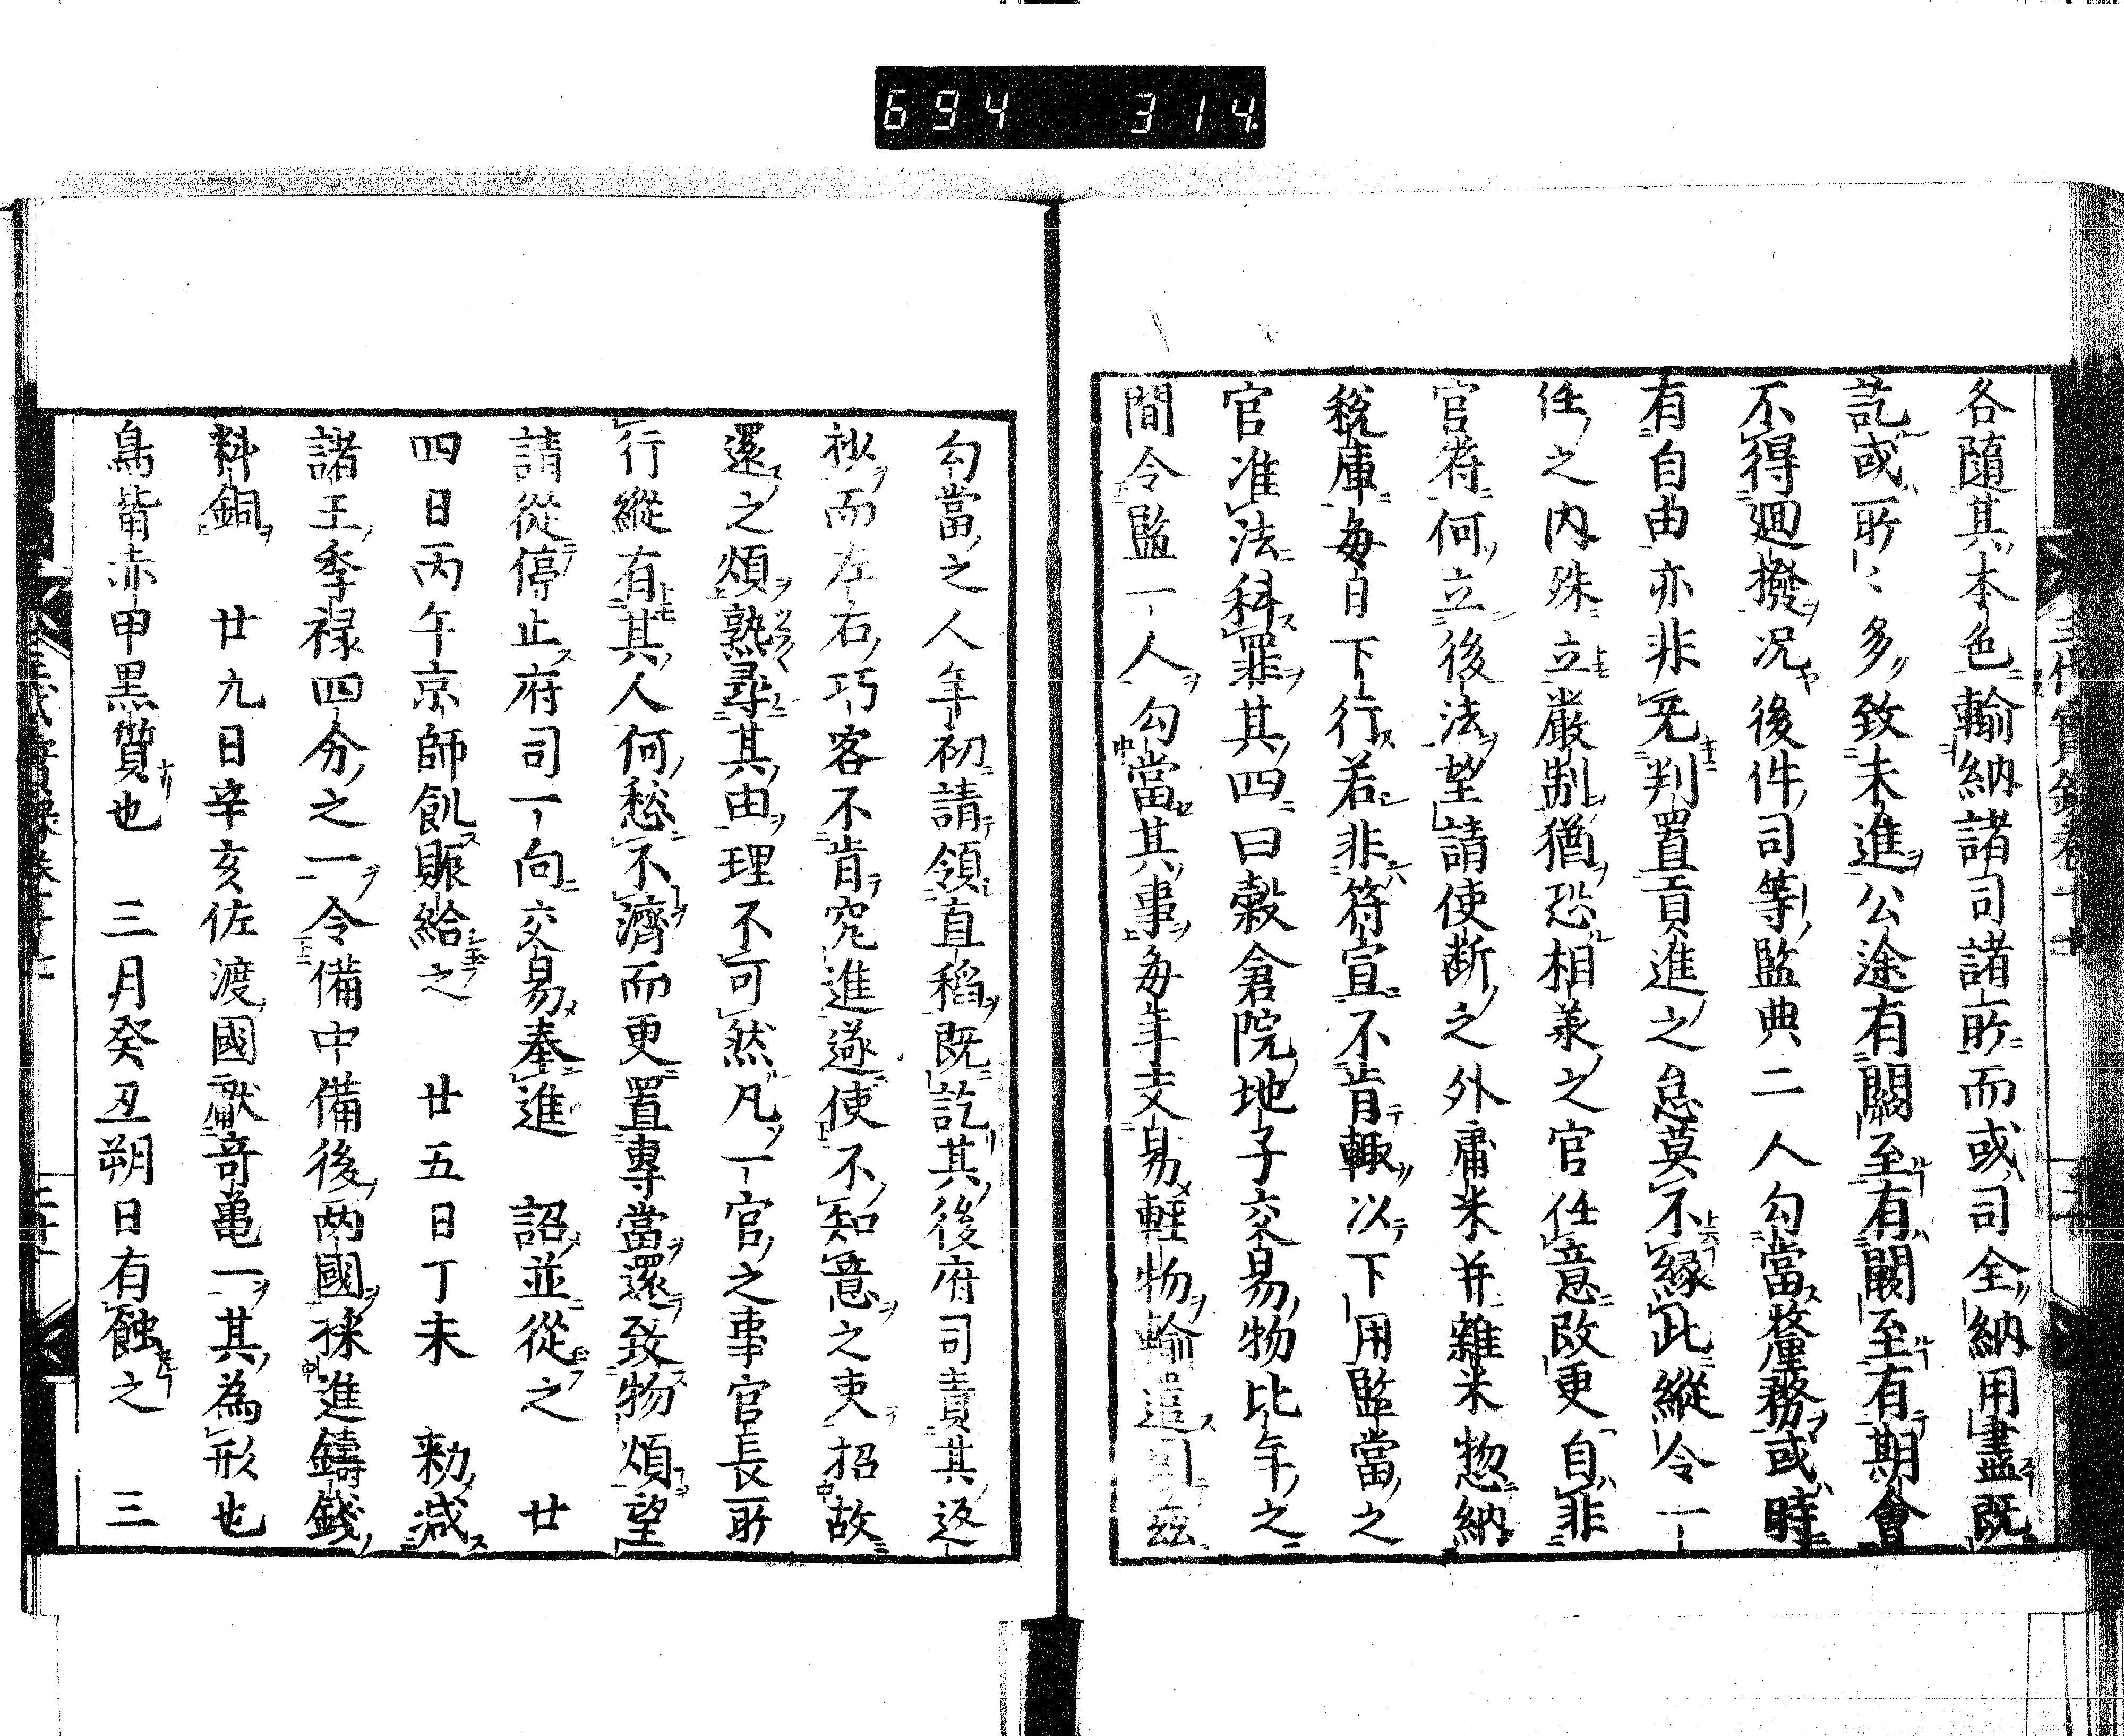 694 314
各隨其本色輸納諸司諸所而或司全納用盡既
訖或所〻多致未進公途有闕至有闕至有期會
不得廻撥况後件司等監典二人勾當整務或時
有自由亦非无判置貢進之怠莫不縁此縱令一
任之内殊立嚴制猶恐相兼之官任意改更自非
官符何立後法望請使断之外庸米并雜米惣納
税庫毎自下行若非符宣不肯輙以下用監當之
官准法科罪其四曰穀倉院地子交易物比年之
間令監一人勾當其事毎年交易軽物輸遣司茲
勾當之人年初請領直稻既訖其後府司責其返
抄而左右巧客不肯究進遂使不知意之吏招故
還之煩熟尋其由理不可然凡一官之事官長所
行縱有其人何愁不濟而更置專當還致物煩望
請從停止府司一向交易奉進　詔並從之　廿
四日丙午京師飢賑給之　廿五日丁未　勅减
諸王季禄四分之一令備中備後两國採進鑄錢
料銅　廿九日辛亥佐渡國獻竒亀一其為形也
鳥觜赤申黒質也　三月癸丑朔日有蝕之　三